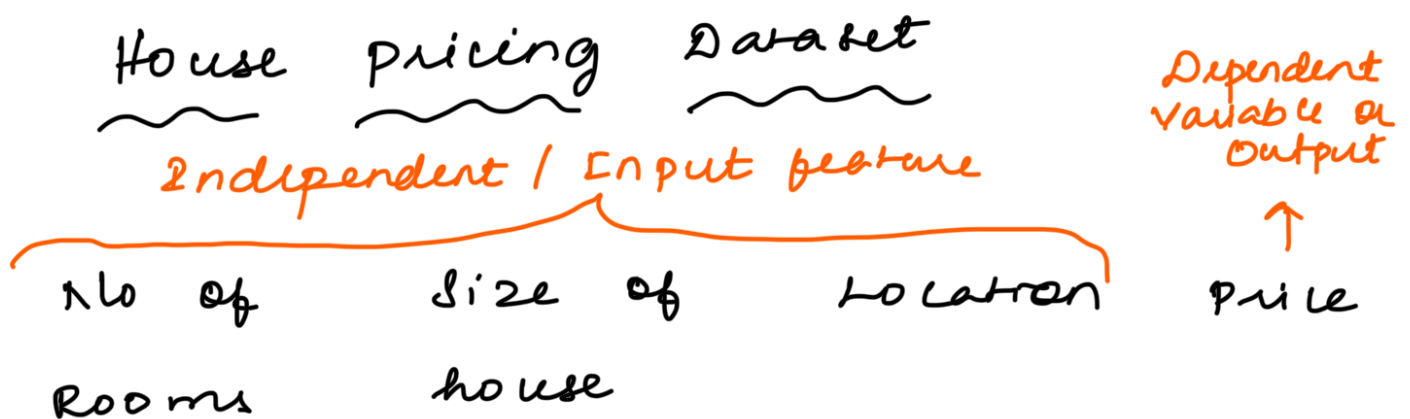 House Pricing Dataset
Dependent
variable or
output
Independent / Input feature
No of Size of Location Price
Rooms house